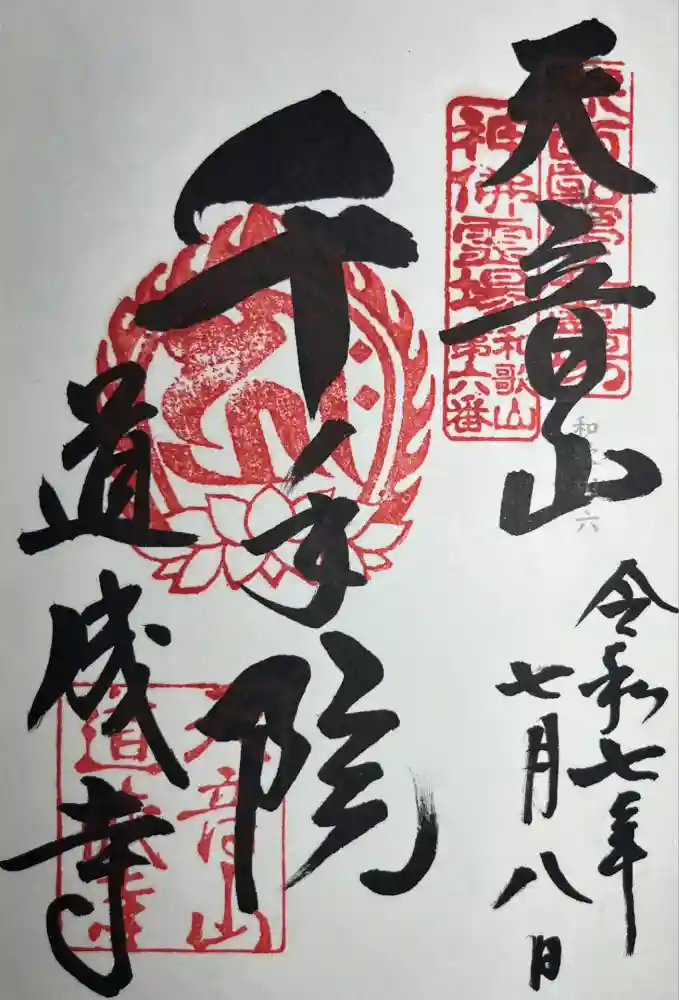 天音山
令和七年
七月八日
千手院
道成寺
神佛霊場
和歌山
第六番
和歌山 六
天音山
道成寺